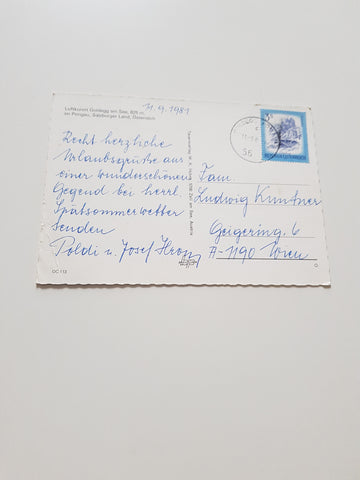 Luftkurort Goldegg am See, 825 m,
im Pongau, Salzburger Land, Österreich
11.9.1981
Recht herzliche
Urlaubsgrüße aus
einer wunderschönen
Gegend bei herrl.
Spätsommerwetter
senden
Poldi u. Josef
Fam.
Ludwig Kuntner
Geigering. 6
A-1190 Wien
REPUBLIK ÖSTERREICH
56